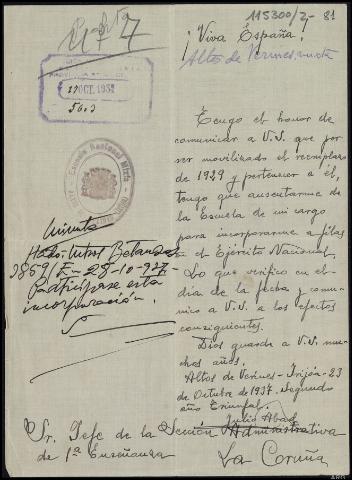 115300/2-81
¡Viva España!
Altos de Vermes, mixta
OCT. 193
5603
Escuela Nacional Mixta
Tengo el honor de
comunicar a V.S. que por
ser movilizado el reemplazo
de 1929 y pertenecer a él,
tengo que ausentarme de
la Escuela de mi cargo
para incorporarme a filas
en el Ejército Nacional.
Lo que verifico en el
día de la fecha y comu-
nico a V.S. a los efectos
consiguientes.
Dios guarde a V.S. mu-
chos años.
Altos de Vermes-Irijóa-23
de Octubre de 1937. Segundo
año Triunfal.
Julio Abad
Minuta
28-10-937-
participase esta
incorporación.
Sr. Jefe de la Sección Administrativa
de 1ª Enseñanza
La Coruña